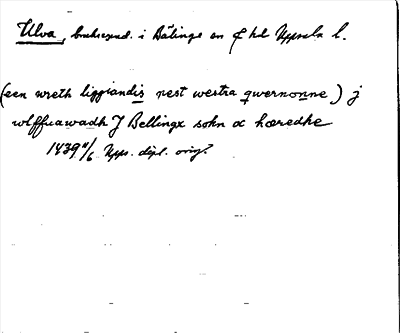 Ulva, bruksegend. i Bälinge sn o hd Uppsala l.
(een wreth liggiandis nest westra qwernonne) j
wlffuawadh J Bellingx sokn oc hæredhe
1439 11/6 Upps. dipl. orig.